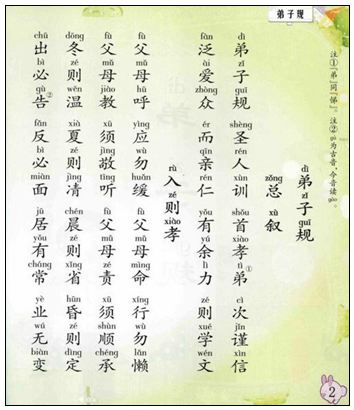 弟子规
注①“弟”同“悌”。注②gù为古音，今音读gào。
dì zǐ guī
弟子规
zǒng xù
总叙
shèng rén xùn shǒu xiào tì cì jǐn xìn
弟子规 圣人训 首孝弟① 次谨信
fàn ài zhòng ér qīn rén yǒu yú lì zé xué wén
泛爱众 而亲仁 有余力 则学文
rù zé xiào
入则孝
fù mǔ hū yìng wù huǎn fù mǔ mìng xíng wù lǎn
父母呼 应勿缓 父母命 行勿懒
fù mǔ jiào xū jìng tīng fù mǔ zé xū shùn chéng
父母教 须敬听 父母责 须顺承
dōng zé wēn xià zé jìng chén zé xǐng hūn zé dìng
冬则温 夏则凊 晨则省 昏则定
chū bì gù fǎn bì miàn jū yǒu cháng yè wú biàn
出必告② 反必面 居有常 业无变
2